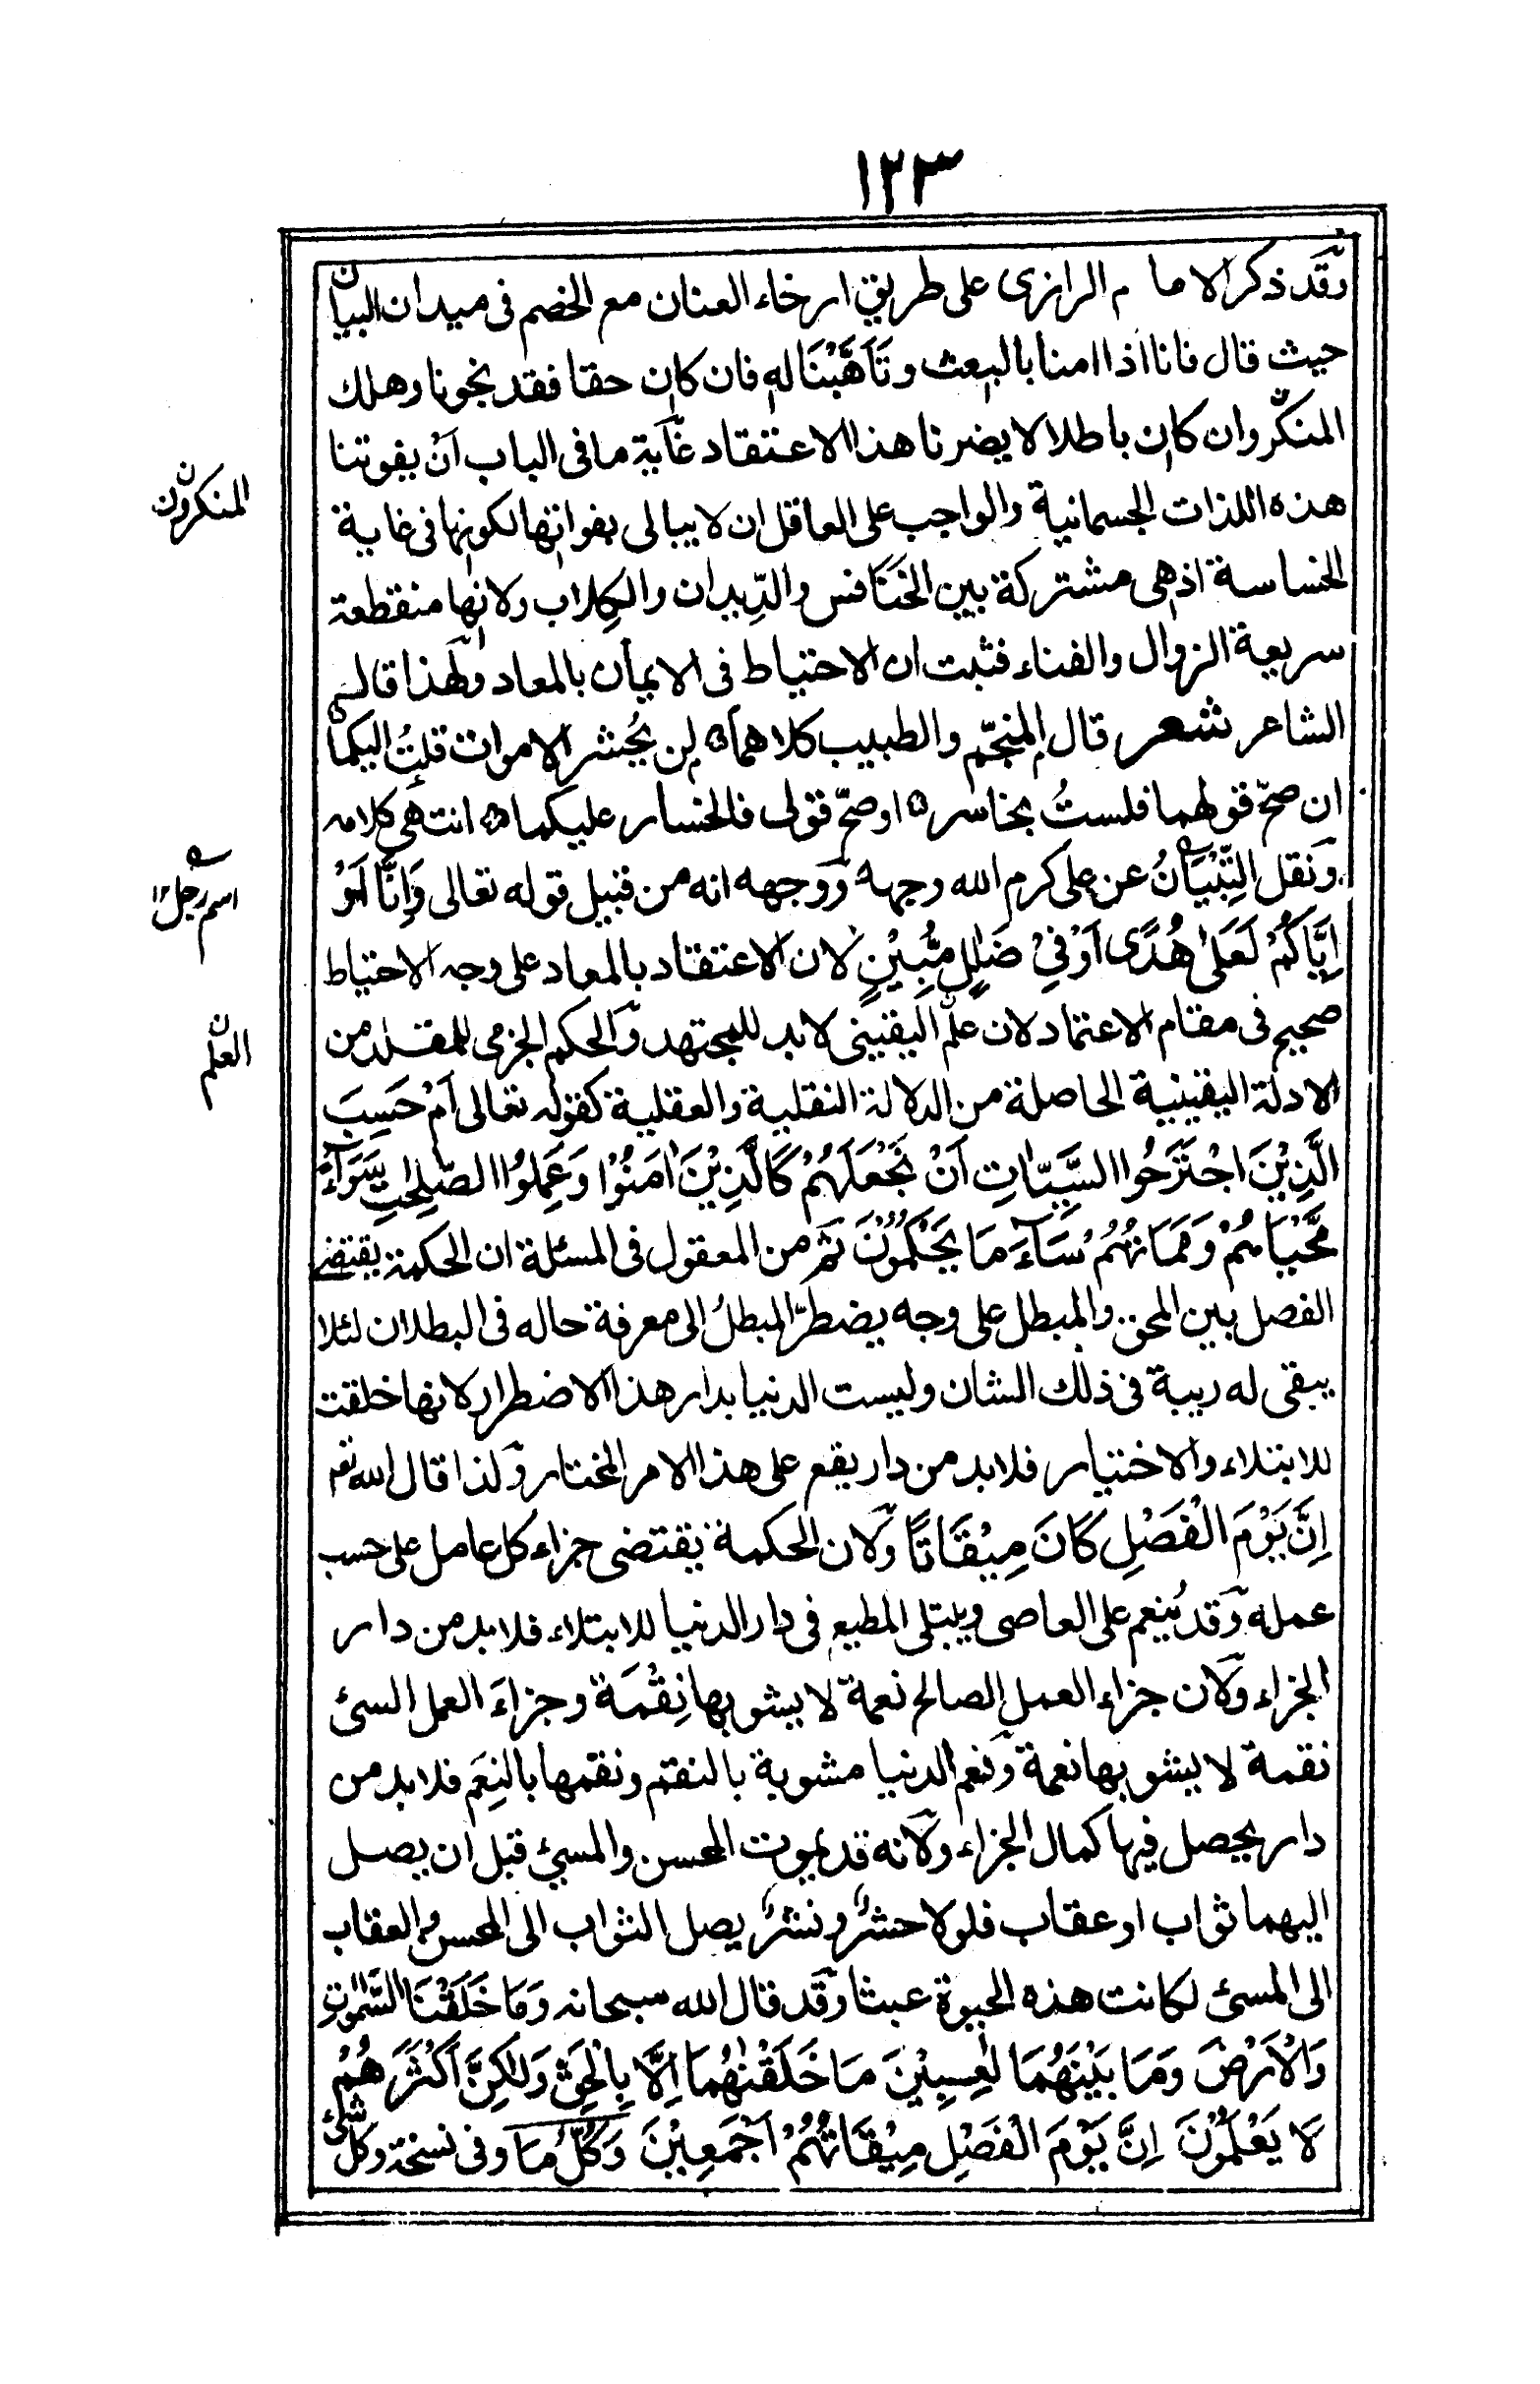 ١٢٣
وقد ذكر الامام الرازى على طريق ارخاء العنان مع الخصم فى ميدان البيان
حيث قال فانا اذا امنا بالبعث وتَأَهَّبْنَا له فان كان حقا فقد نجونا وهلك
المنكر وان كان باطلا لا يضرنا هذا الاعتقاد غاية ما فى الباب اَنْ يفوتنا
هذه اللذات الجسمانية والواجب على العاقل ان لا يبالى بفواتها لكونها فى غاية
الخساسة اذ هى مشتركة بين الخَنَافس والدِّيدان والكِلاب ولانها منقطعة
سريعة الزوال والفناء فثبت ان الاحتياط فى الايمان بالمعاد ولهذا قال
الشاعر شعر قال المنجّم والطبيب كلاهما ۞ لن يُحشر الاموات قلتُ اليكما ۞
ان صحّ قولهما فلستُ بخاسر ۞ او صحّ قولى فالخسار عليكما ۞ انتهى كلامه
ونقل التِّبْيَانُ عن على كرم الله وجهه ووجهه انه من قبيل قوله تعالى وَاِنَّا اَوْ
اِيَّاكُمْ لَعَلٰى هُدًى اَوْ فِيْ ضَلٰلٍ مُّبِيْنٍ لان الاعتقاد بالمعاد على وجه الاحتياط
صحيح فى مقام الاعتماد لان علم اليقينى لابد للمجتهد والحكم الجزمى للمقلد من
الادلة اليقينية الحاصلة من الدلالة النقلية والعقلية كقوله تعالى اَمْ حَسِبَ
الَّذِيْنَ اجْتَرَحُوا السَّيِّاٰتِ اَنْ نَّجْعَلَهُمْ كَالَّذِيْنَ اٰمَنُوْا وَعَمِلُوا الصّٰلِحٰتِ سَوَآءً
مَّحْيَاهُمْ وَمَمَاتُهُمْ سَآءَ مَا يَحْكُمُوْنَ ثم من المعقول فى المسئلة ان الحكمة يقتضى
الفصل بين المحق والمبطل على وجه يضطرّ المبطلُ الى معرفة حاله فى البطلان لئلا
يبقى له ريبة فى ذلك الشان وليست الدنيا بدار هذا الاضطرار لانها خلقت
للابتلاء والاختيار فلابد من دار يقع على هذا الامر المختار ولذا قال الله تعم
اِنَّ يَوْمَ الْفَصْلِ كَانَ مِيْقَاتًا ولان الحكمة يقتضى جزاء كل عامل على حسب
عمله وقد يُنعم على العاصى ويبتلى المطيع فى دار الدنيا للابتلاء فلابد من دار
الجزاء ولان جزاء العمل الصالح نعمة لا يشوبها نِقْمَة وجزاءَ العمل السىئ
نقمة لا يشوبها نعمة ونعم الدنيا مشوبة بالنقم ونقمها بالنِعَم فلابد من
دار يحصل فيها كمال الجزاء ولانه قد يموت المحسن والمسيئ قبل ان يصل
اليهما ثواب او عقاب فلولا حشر ونشر يصل الثواب الى المحسن والعقاب
الى المسئ لكانت هذه الحيوة عبثا وقد قال الله سبحانه وَمَا خَلَقْنَا السَّمٰوٰتِ
وَالْاَرْضَ وَمَا بَيْنَهُمَا لٰعِبِيْنَ مَا خَلَقْنٰهُمَا اِلَّا بِالْحَقِّ وَلٰكِنَّ اَكْثَرَهُمْ
لَا يَعْلَمُوْنَ اِنَّ يَوْمَ الْفَصْلِ مِيْقَاتُهُمْ اَجْمَعِيْنَ وَكُلُّ مَا وفى نسخة وكل شىء
المنكرون ن
اسم رجل ١٢
العلم ن